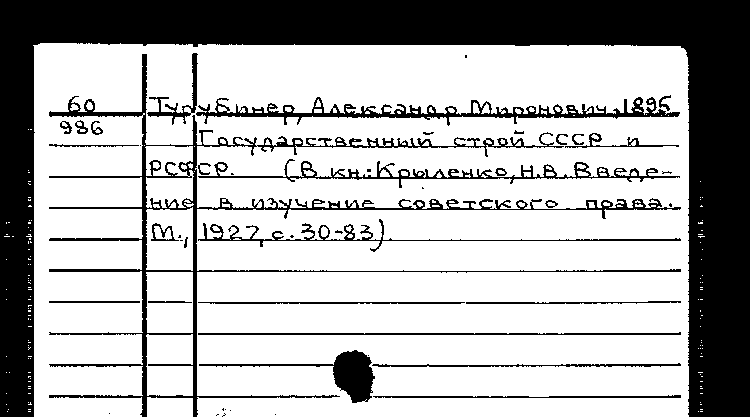 60 Турубинер, Александр Миронович, 1895
986 Государственный строй СССР и
РСФСР. (В кн.: Крыленко, Н.В. Введе-
ние в изучение советского права.
М., 1927, с. 30-83).